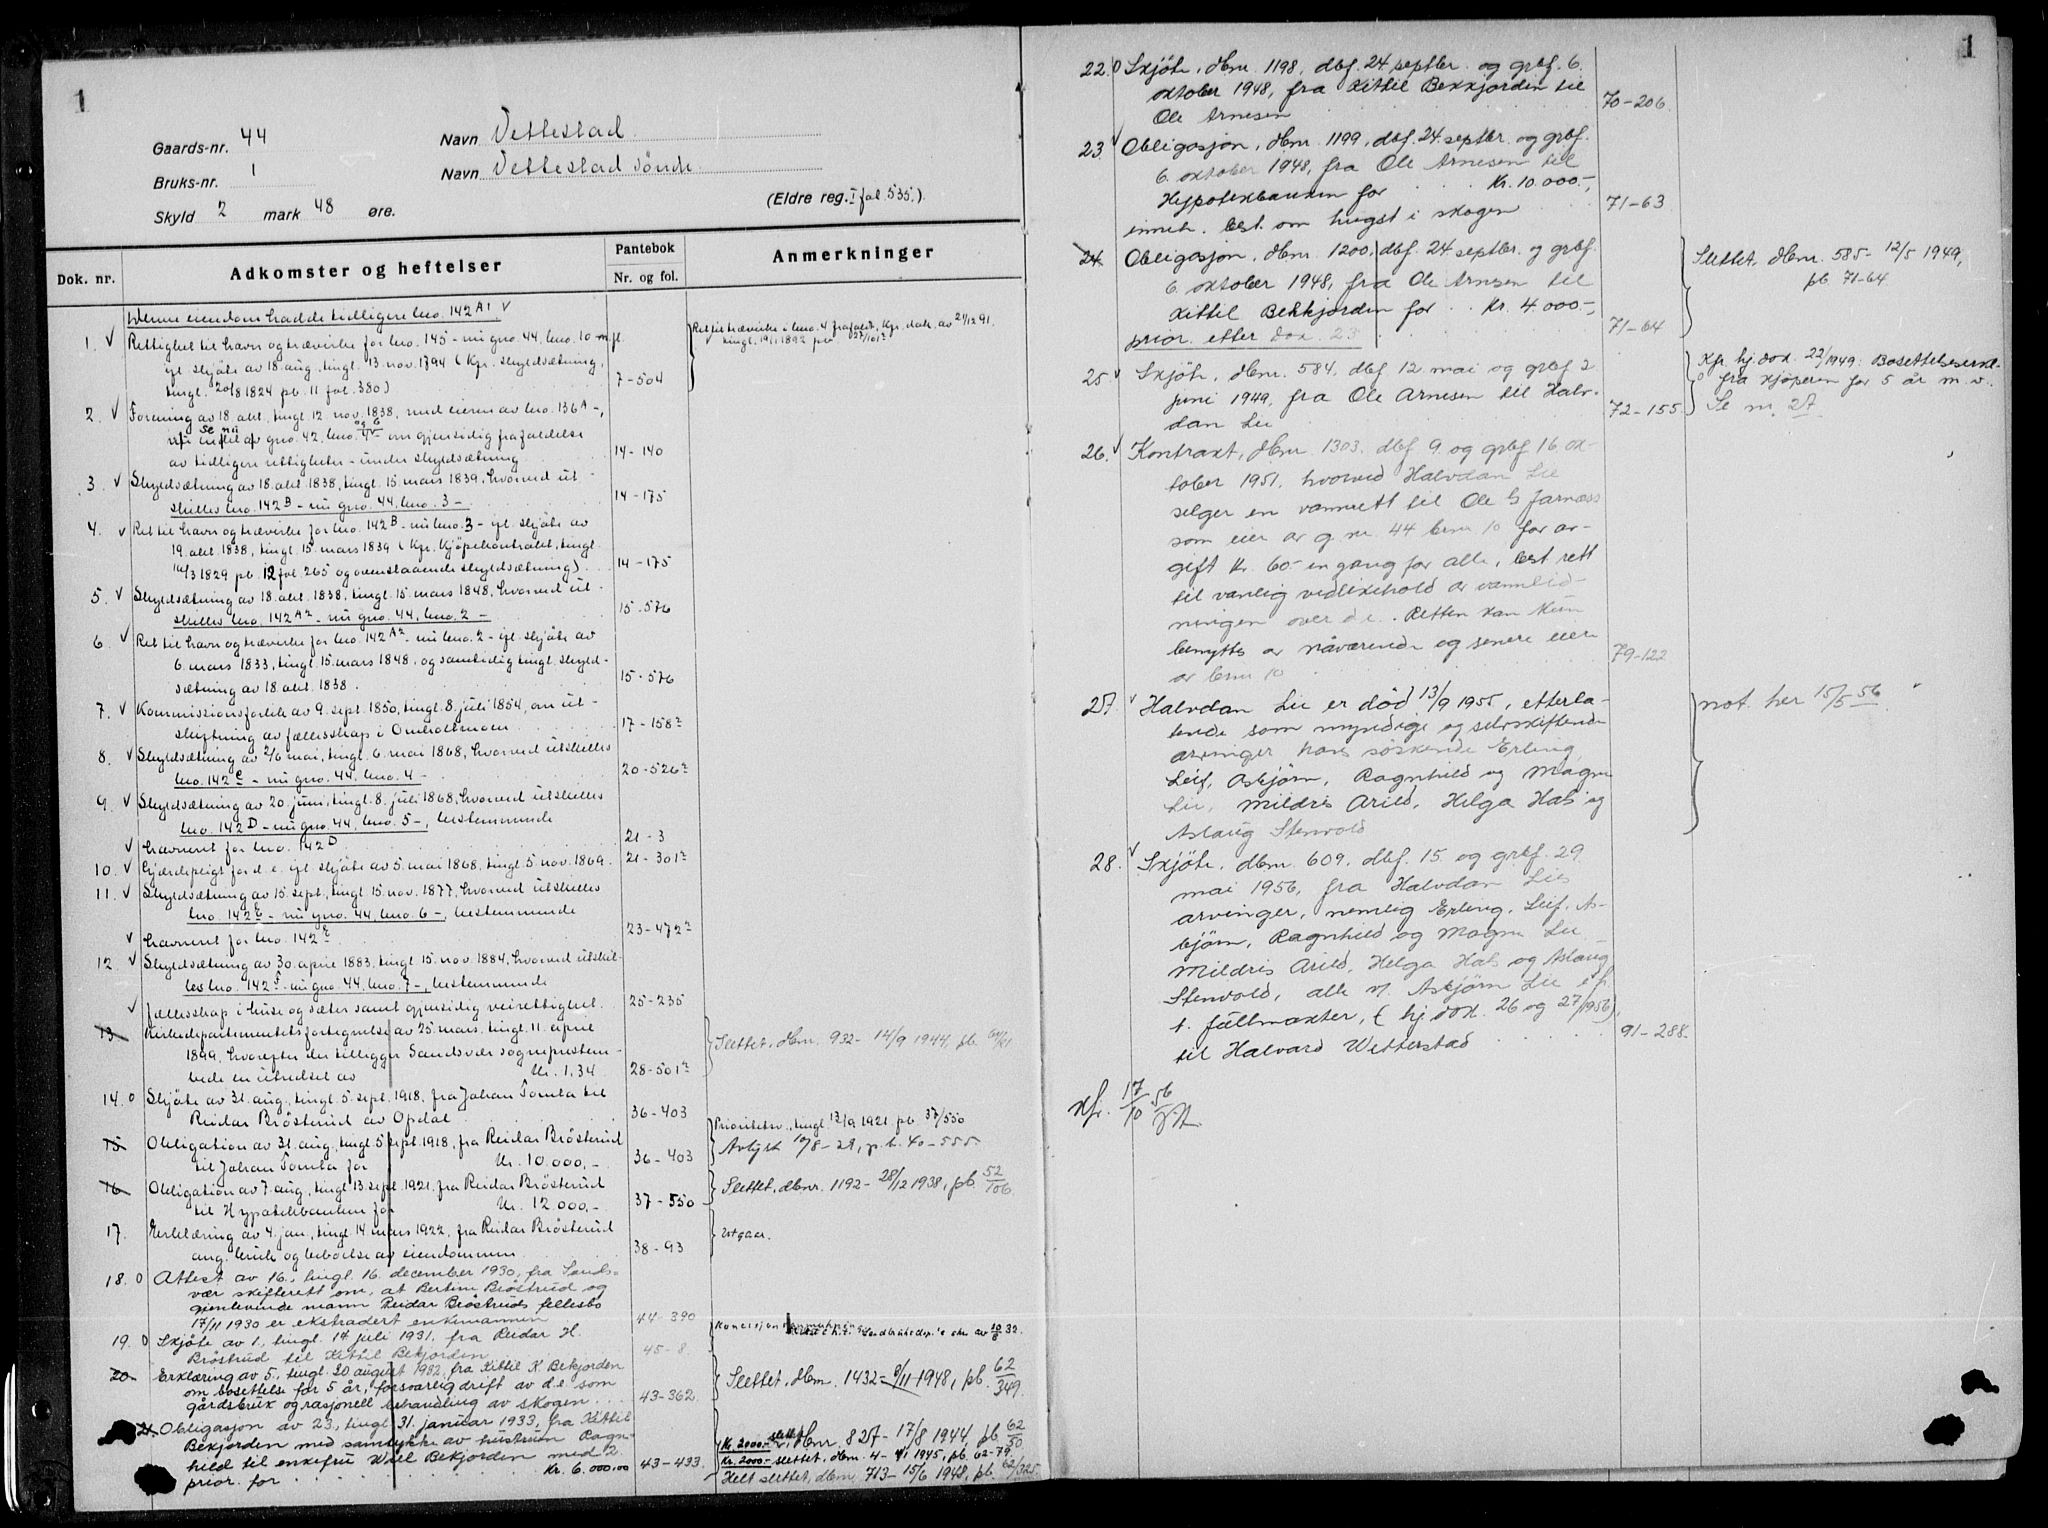 1
Gaards-nr. 44 Navn Vettestad
Bruks-nr. 1 Navn Vettestad söndr.
Skyld 2 mark 48 øre. (Eldre reg. I fol. 535.)
Dok. nr. Adkomster og heftelser Pantebok Nr. og fol. Anmerkninger
Denne eiendom hadde tidligere lno. 142 A1 √
1. √ Rettighet til havn og trævirke for lno. 145 - nu gno. 44, bno. 10 m.fl.
ifl. skjöte av 18. aug., tingl. 13. nov. 1794 (Kfr. skyldsætning,
tingl. 20/8 1824 pb. 11 fol. 380) 7-504
Ret til trævirke i bno. 4 frafaldt, Kfr. dok. av 21/12 91,
tingl. 19/1 1892 pb. 27/101
2. √ Forening av 18. okt., tingl. 12. nov. 1838, med eieren av lno. 136 A -,
nu en del av gno. 42, bno. om gjensidig frafaldelse
av tidligere rettigheter - under skyldsætning 14-140
3. √ Skyldsætning av 18. okt. 1838, tingl. 15. mars 1839, hvorved ut-
skilles lno. 142 B - nu gno. 44, bno. 3 - 14-175
4. √ Ret til havn og trævirke for lno. 142 B - nu bno. 3 - ifl. skjöte av
19. okt. 1838, tingl. 15. mars 1839 (Kfr. Kjöpekontrakt, tingl.
10/3 1829 pb. 12 fol. 265 og ovenstaaende skyldsætning) 14-175
5. √ Skyldsætning av 18. okt. 1838, tingl. 15. mars 1848, hvorved ut-
skilles lno. 142 A2 - nu gno. 44, bno. 2 - 15-576
6. √ Ret til havn og trævirke for lno. 142 A2 - nu bno. 2 - ifl. skjöte av
6. mars 1833, tingl. 15. mars 1848, og samtidig tingl. skyld-
sætning av 18. okt. 1838. 15-576
7. √ Kommissionsforlik av 9. sept. 1850, tingl. 8. juli 1854, om ut-
skiftning av fællesskap i Omholtmoen 17-158
8. √ Skyldsætning av 2/6 mai, tingl. 6. mai 1868, hvorved utskilles
lno. 142 C - nu gno. 44, bno. 4 - 20-526
9. √ Skyldsætning av 20. juni, tingl. 8. juli 1868, hvorved utskilles
lno. 142 D - nu gno. 44, bno. 5 -, bestemmende
√ havneret for lno. 142 D 21-3
10. √ Gjærdepligt for d.e. ifl. skjöte av 5. mai 1868, tingl. 5. nov. 1869. 21-301
11. √ Skyldsætning av 15. sept., tingl. 15. nov. 1877, hvorved utskilles
lno. 142 E - nu gno. 44, bno. 6 -, bestemmende
√ havneret for lno. 142 E 23-472
12. √ Skyldsætning av 30. april 1883, tingl. 15. nov. 1884, hvorved utskil-
les lno. 142 F - nu gno. 44, bno. 7 -, bestemmende
√ fællesskap i huse og sæter samt gjensidig veirettighet. 25-235
13. Kirkedepartementets fortegnelse av 25. mars, tingl. 11. april
1899, hvorefter der tillægges Sandsvær sogneprestem-
bede en utredsel av Kr. 1,34 28-501
Slettet, dbnr. 932 - 14/9 1944, pb.
14. o Skjöte av 31. aug., tingl. 5. sept. 1918, fra Johan Tomta til
Reidar Bröstrud av Opdal 36-403
15. Obligation av 31. aug., tingl. 5. sept. 1918, fra Reidar Bröstrud
til Johan Tomta for Kr. 10.000,- 36-403
Prioritetsv., tingl. 13/9 1921 pb. 37/550
Avlyst 10/8-28, p.b. 40-555.
16. Obligation av 7. aug., tingl. 13. sept. 1921, fra Reidar Bröstrud
til Hypotekbanken for Kr. 12.000,- 37-550
Slettet, dbnr. 1192 - 28/12 1938, pb. 52/106.
17. Erklæring av 4. jan., tingl. 14. mars 1922, fra Reidar Bröstrud
ang. bruk og beboelse av eiendommen 38-93
Utgaar.
18. o Attest av 16., tingl. 16. december 1930, fra Sands-
vær skifterett om, at Bertine Bröstrud og
gjenlevende mann Reidar Bröstruds fellesbo
17/11 1930 er ekstradert enkemannen 44-390
19. o Skjöte av 1., tingl. 14. juli 1931, fra Reidar H.
Bröstrud til Kittil Bekjorden 45-8.
Koncesjon
20. Erklæring av 5., tingl. 20. august 1932, fra Kittil K. Bekjorden
om bosettelse for 5 år, forsvarlig drift av d.e. som
gårdsbruk og rasjonell behandling av skogen 43-362.
Slettet, dbnr. 1432 - 8/11 1948, pb. 62/349.
21. Obligasjon av 23., tingl. 31. januar 1933, fra Kittil
Bekjorden med samtykke av hustruen Ragn-
hild til enkefru Bekjorden med 2.
prior. for Kr. 6.000,00 43-433.
Kr. 2000.- slettet, dbnr. 827 - 17/8 1944, pb. 62/50
Kr. 2000.- slettet, dbnr. 4 - 4/1 1945, pb. 62-79.
Helt slettet, dbnr. 713 - 15/6 1948, pb. 62/325.
1
22. o Skjöte, dbnr. 1198, dbf. 24. septbr. og grbf. 6.
oktober 1948, fra Kittil Bekkjorden til
Ole Arnesen 70-206
23. √ Obligasjon, dbnr. 1199, dbf. 24. septbr. og grbf.
6. oktober 1948, fra Ole Arnesen til
Hypotekbanken for Kr. 10.000.-,
inneh. best. om hugst i skogen 71-63
24. Obligasjon, dbnr. 1200, dbf. 24. septbr. og grbf.
6. oktober 1948, fra Ole Arnesen til
Kittil Bekkjorden for Kr. 4.000.-,
prior. etter dok. 23 71-64
Slettet, dbnr. 585 - 12/5 1949,
pb. 71-64
25. √ Skjöte, dbnr. 584, dbf. 12. mai og grbf. 2.
juni 1949, fra Ole Arnesen til Halv-
dan Lie 72-155
Kfr. hj.dok. 22/1949. Bosettelseserkl.
o fra kjöperen for 5 år m.v.
Se nr. 27.
26. √ Kontrakt, dbnr. 1303, dbf. 9. og grbf. 16. ok-
tober 1951, hvorved Halvdan Lie
selger en vannrett til Ole G. Jarness
som eier av g.nr. 44 bnr. 10 for av-
gift kr. 60.- en gang for alle, best. rett
til vanlig vedlikehold av vannled-
ningen over d.e. Retten kan kun
benyttes av nåværende og senere eiere
av bnr. 10 79-122
27. √ Halvdan Lie er död 13/9 1955, etterla-
tende som myndige og selvskiftende
arvinger hans söskende Erling,
Leif, Asbjörn, Ragnhild og Magne
Lie, Mildris Arild, Helga Hals og
Aslaug Stenvold
not. her 15/5 56
28. √ Skjöte, dbnr. 609, dbf. 15. og grbf. 29.
mai 1956, fra Halvdan Lies
arvinger, nemlig Erling, Leif, As-
björn, Ragnhild og Magne Lie,
Mildris Arild, Helga Hals og Aslaug
Stenvold, alle v/ Asbjörn Lie e.fr.
t. fullmakter, (hj.dok. 26 og 27/1956),
til Halvard Wetterstad 91-288.
kfr. 17/10 56